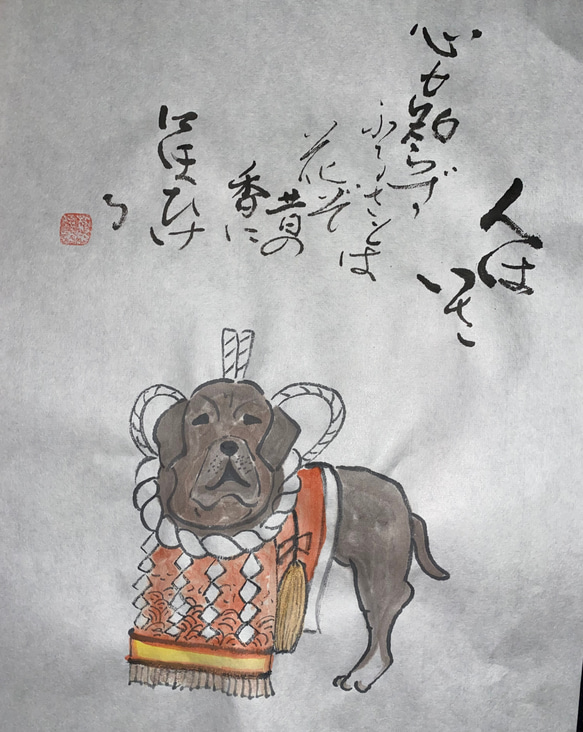 人は
いさ
心も知らず
ふるさとは
花ぞ
昔の
香に
にほひけ
る